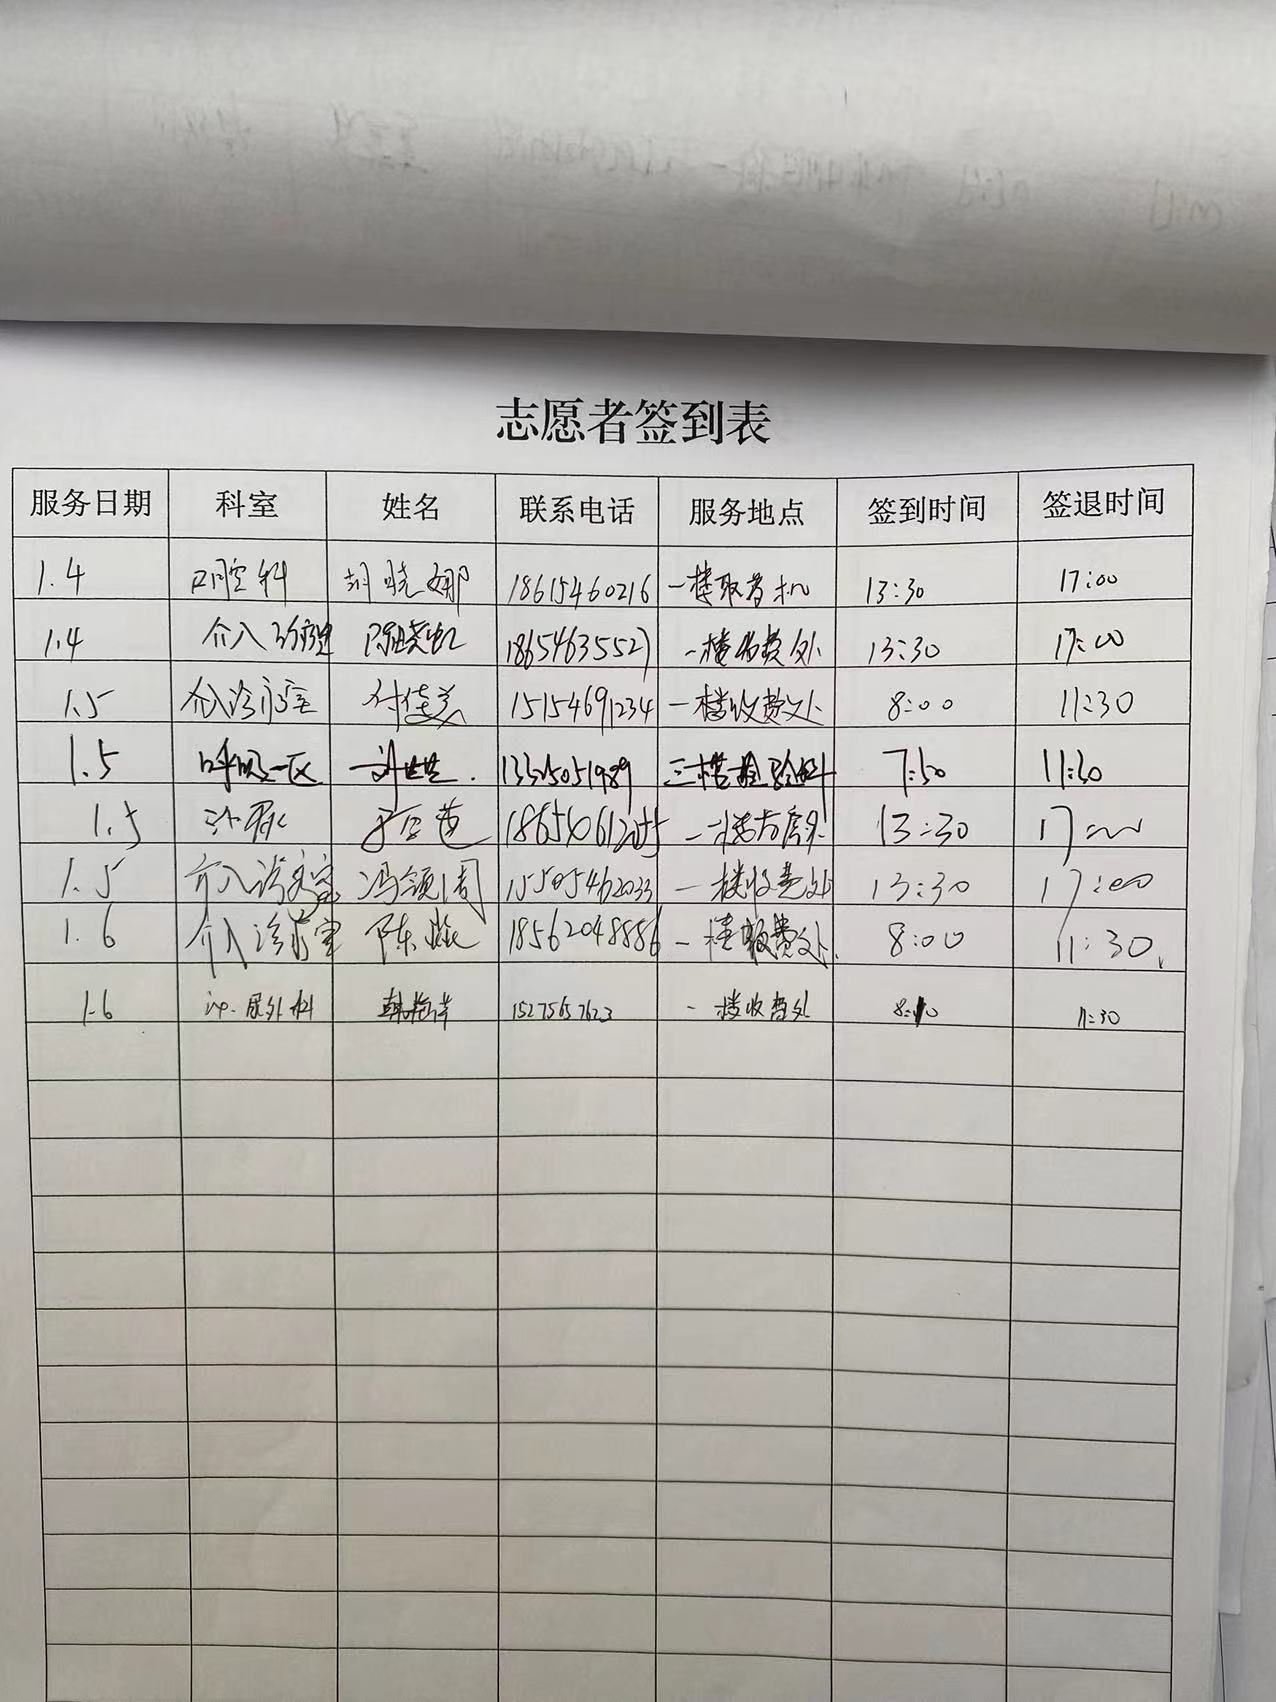 志愿者签到表
服务日期 科室 姓名 联系电话 服务地点 签到时间 签退时间
1.4 口腔科 胡晓娜 18615460216 一楼取片机 13:30 17:00
1.4 介入诊疗室 18654635527 一楼收费处 13:30 17:00
1.5 介入诊疗室 付佳美 15154691234 一楼收费处 8:00 11:30
1.5 呼吸一区 三楼检验科 7:50 11:30
1.5 13:30 17:00
1.5 介入诊疗室 冯领周 15505462033 一楼收费处 13:30 17:00
1.6 介入诊疗室 18562048886 一楼收费处 8:00 11:30
1.6 泌尿外科 15275657623 一楼收费处 11:30